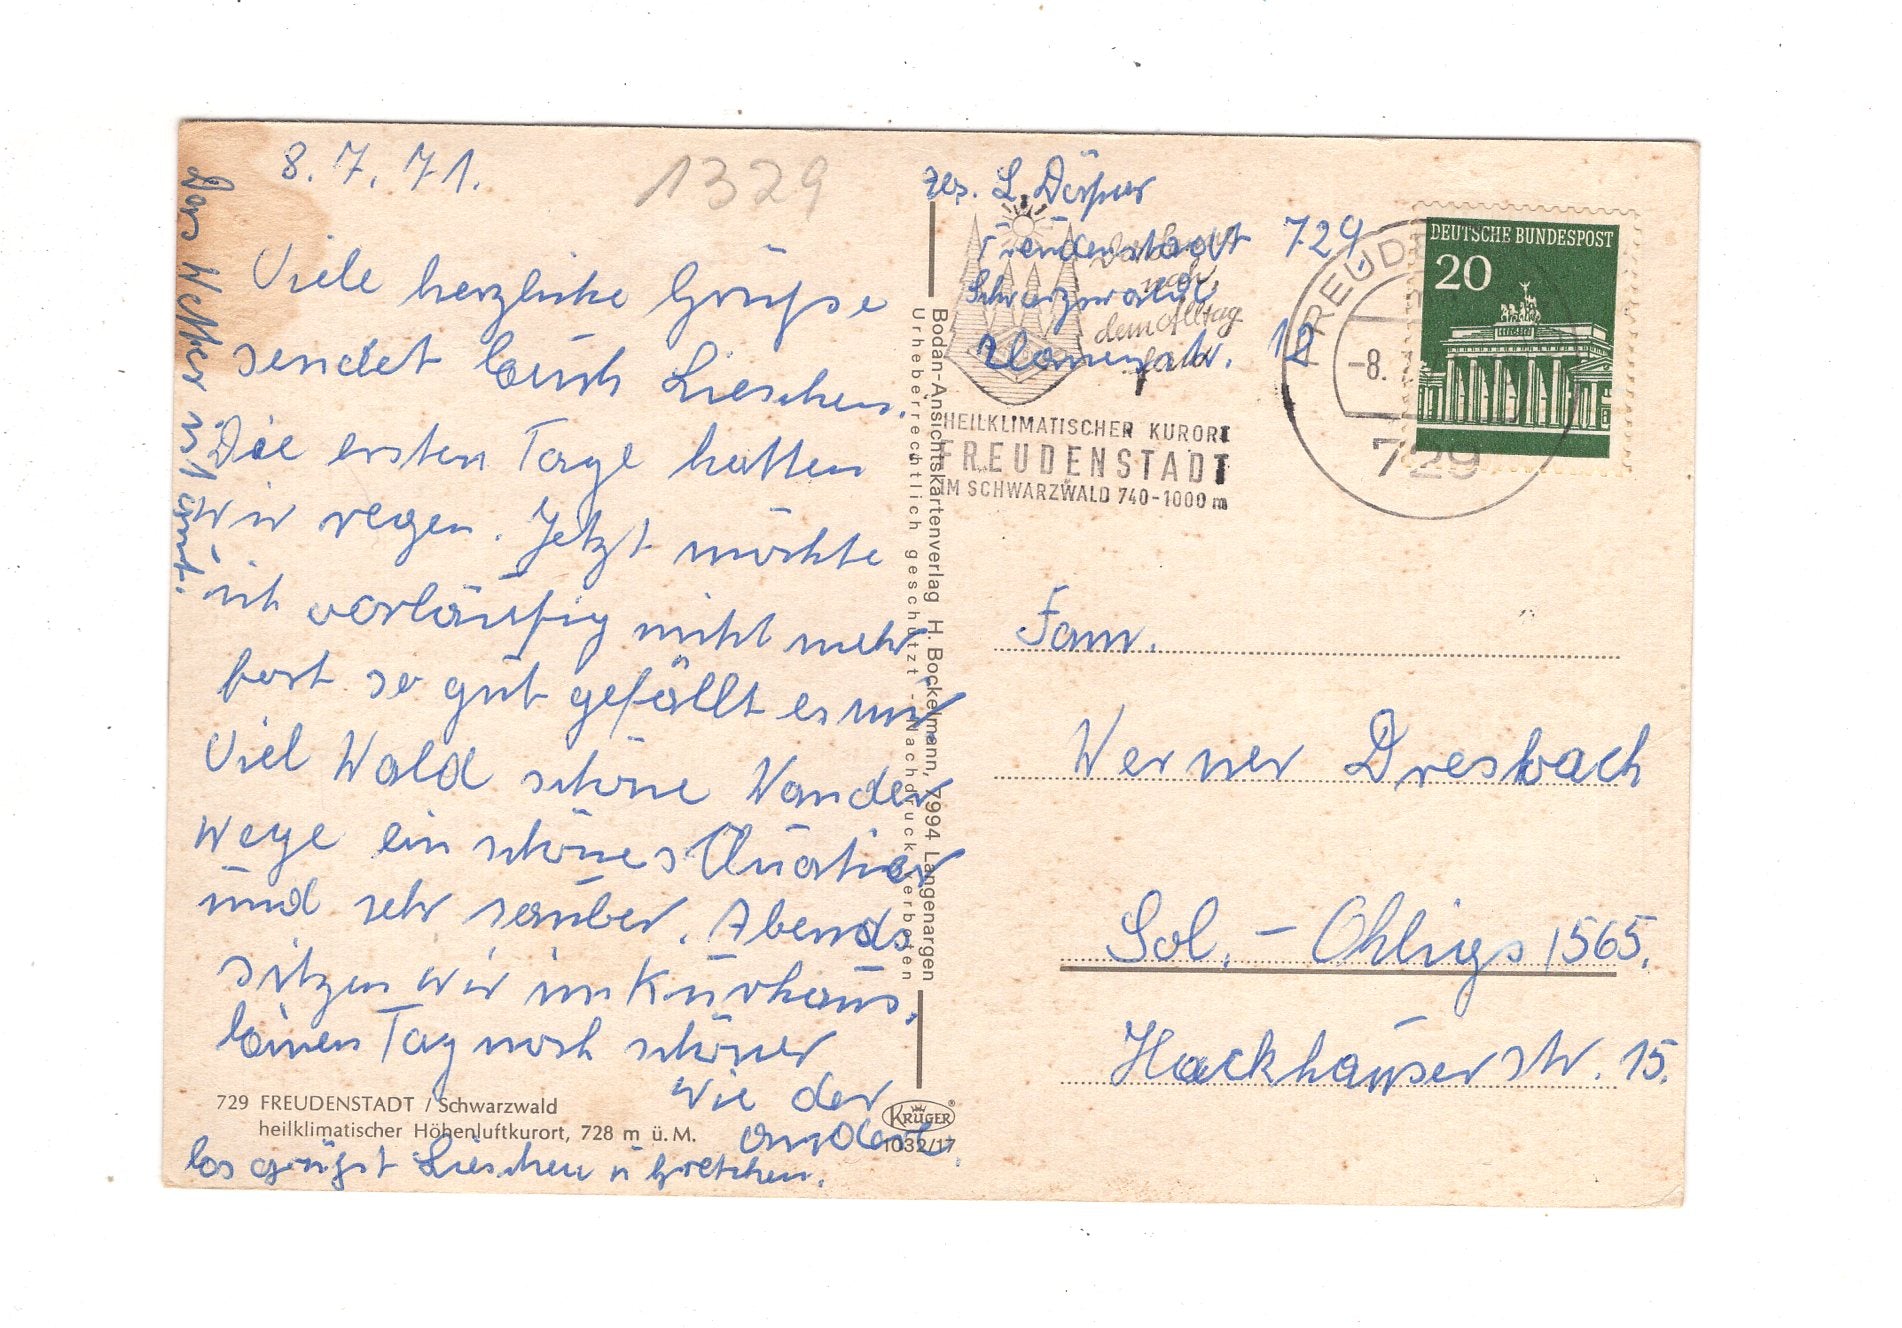 8. 7. 71.
1329
Viele herzliche Grüße
sendet Euch Lieschen.
Die ersten Tage hatten
wir regen. Jetzt möchte
ich vorläufig nicht mehr
fort so gut gefällt es mir.
Viel Wald schöne Wander
Wege ein schönes Quatier
und sehr sauber. Abends
sitzen wir im Kurhaus.
Einen Tag noch schöner
wie der
andere.
Es grüßt Lieschen u Gretchen.
Das Wetter ist gut.
729 FREUDENSTADT / Schwarzwald
heilklimatischer Höhenluftkurort, 728 m ü. M.
Bodan-Ansichtskartenverlag H. Bockelmann, 7994 Langenargen
Urheberrechtlich geschützt - Nachdruck verboten
KRÜGER
1032/17
L. Dörper
Freudenstadt 729
Schwarzwald
12
dem Alltag
HEILKLIMATISCHER KURORT
FREUDENSTADT
IM SCHWARZWALD 740-1000 m
FREUD
-8.
729
DEUTSCHE BUNDESPOST
20
Fam.
Werner Dresbach
Sol. - Ohligs 1565.
Hackhauserstr. 15.